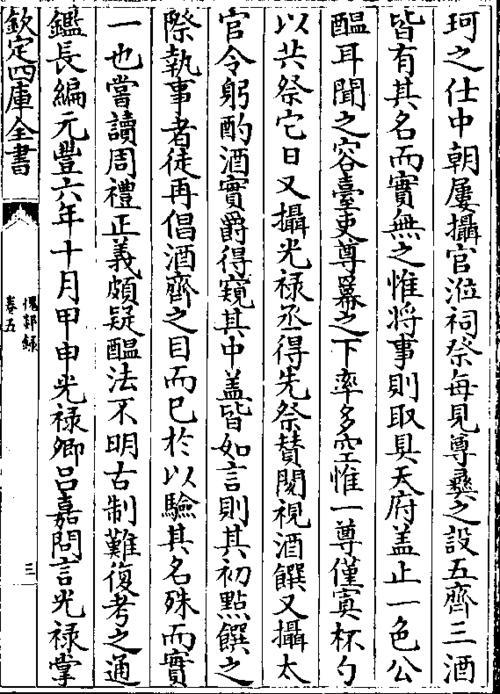 珂之仕中朝屢攝官涖祠祭每見尊彛之設五齊三酒
皆有其名而實無之惟將事則取具天府蓋止一色公
醖耳聞之容臺吏尊羃之下率多空惟一尊僅寘杯勺
以共祭它日又攝光禄丞得先祭賛閲視酒饌又攝太
官令躬酌酒實爵得窺其中蓋皆如言則其初點饌之
際執事者徒再倡酒齊之目而已於以驗其名殊而實
一也嘗讀周禮正義頗疑醖法不明古制難復考之通
鑑長編元豐六年十月甲申光禄卿吕嘉問言光禄掌
欽定四庫全書
愧郯録
卷五
三